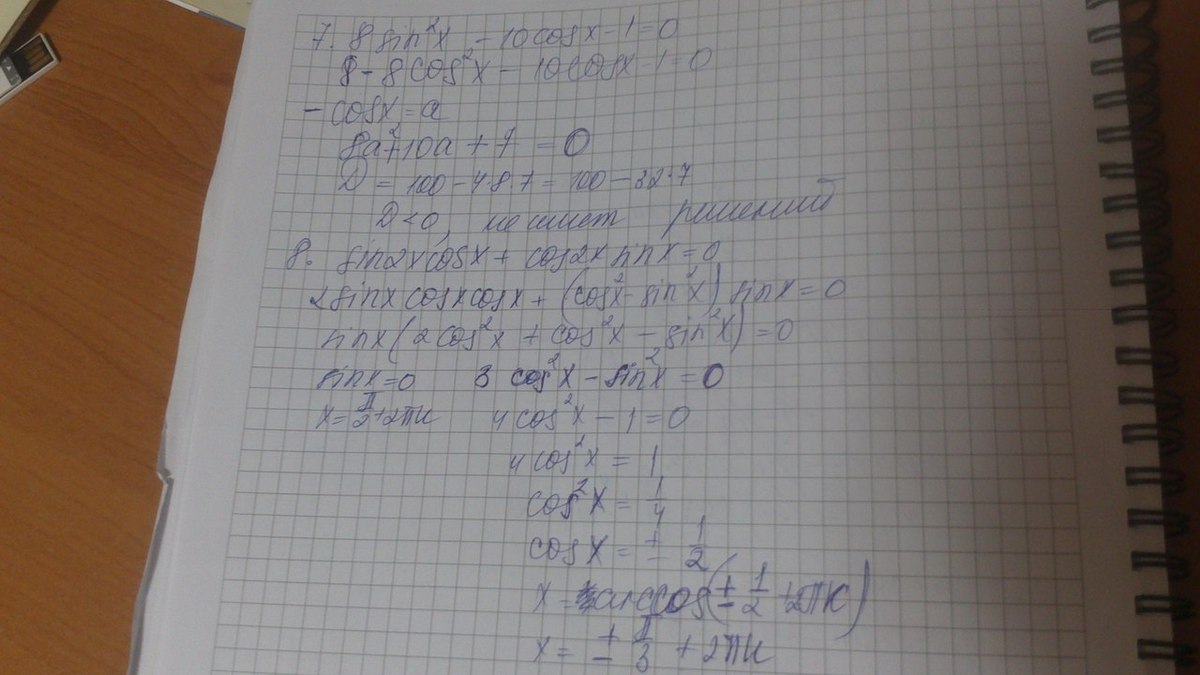 7. 8 sin²x - 10cosx - 1 = 0
8 - 8cos²x - 10cosx - 1 = 0
- cosx = a
8a² + 10a + 7 = 0
D = 100 - 4·8·7 = 100 - 32·7
D < 0, не имеет решений
8. sin2x cosx + cos2x sinx = 0
2sinx cosx cosx + (cos²x - sin²x) sinx = 0
sinx (2cos²x + cos²x - sin²x) = 0
sinx = 0 3 cos²x - sin²x = 0
x = π/2 + 2πк 4cos²x - 1 = 0
4cos²x = 1
cos²x = 1/4
cosx = ± 1/2
x = arccos(± 1/2 + 2πк)
x = ± π/3 + 2πк